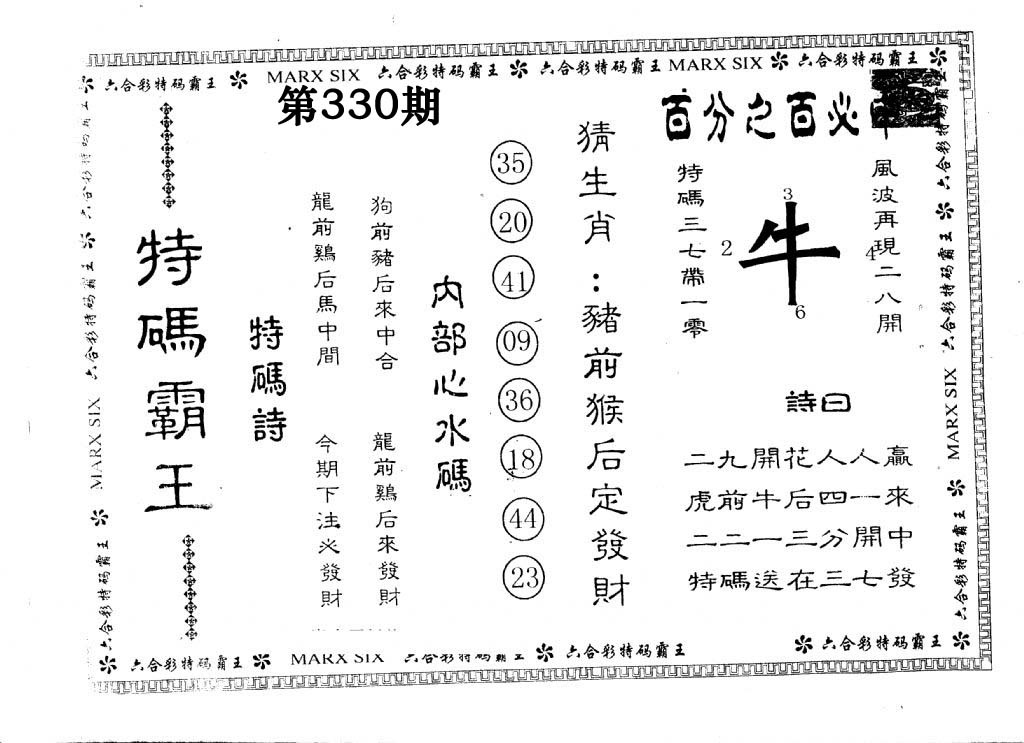 六合彩特码霸王 MARX SIX 六合彩特码霸王 六合彩特码霸王 MARX SIX 六合彩特码霸王
第330期
百分之百必
風波再現二八開
特碼三七帶一零
3
2
牛
4
6
詩曰
二九開花人人贏
虎前牛后四一來
二二一三分開中
特碼送在三七發
猜生肖：豬前猴后定發財
35
20
41
09
36
18
44
23
內部心水碼
狗前豬后來中合
龍前鷄后來發財
龍前鷄后馬中間
今期下注必發財
特碼詩
特碼霸王
六合彩特码霸王
六合彩特码霸王
MARX SIX
六合彩特码霸王
六合彩特码霸王
六合彩特码霸王
MARX SIX
六合彩特码霸王
六合彩特码霸王 MARX SIX 六合彩特码霸王 六合彩特码霸王 六合彩特码霸王